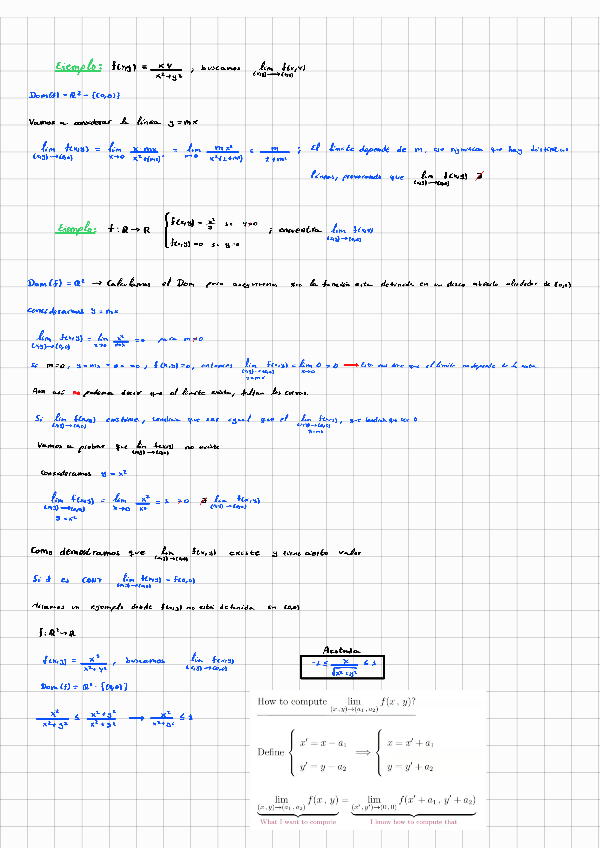 Ejemplo: f(x,y) = xy / x²+y² ; buscamos lim (x,y)→(0,0) f(x,y)
Dom(f) = ℝ² - {(0,0)}
Vamos a considerar la línea y = mx
lim (x,y)→(0,0) f(x,y) = lim x→0 x·mx / x²+(mx)² = lim x→0 mx² / x²(1+m²) = m / 1+m² ; El límite depende de m, eso significa que hay distintas
líneas, provocando que lim (x,y)→(0,0) f(x,y) ∄
Ejemplo: f: ℝ → ℝ { f(x,y) = x²/y si y≠0
f(x,y) = 0 si y=0 ; encuentra lim (x,y)→(0,0) f(x,y)
Dom(f) = ℝ² → Calculamos el Dom para asegurarnos que la función esta definida en un disco abierto alrededor de (0,0)
consideramos y = mx
lim (x,y)→(0,0) f(x,y) = lim x→0 x²/mx = 0 para m≠0
Si m=0, y = mx = 0 , f(x,y)=0, entonces lim (x,y)→(0,0) y=mx f(x,y) = lim x→0 0 = 0 → Esto nos dice que el límite no depende de la recta
Aun así no podemos decir que el límite exista, faltan las curvas.
Si lim (x,y)→(0,0) f(x,y) existiese, tendría que ser igual que el lim (x,y)→(0,0) y=mx f(x,y), que tendría que ser 0
Vamos a probar que lim (x,y)→(0,0) f(x,y) no existe
Consideramos y = x²
lim (x,y)→(0,0) y=x² f(x,y) = lim x→0 x²/x² = 1 ≠ 0 ∄ lim (x,y)→(0,0) f(x,y)
Como demostramos que lim (x,y)→(0,0) f(x,y) existe y tiene cierto valor
Si f es CONT lim (x,y)→(0,0) f(x,y) = f(0,0)
un ejemplo donde f(x,y) no está definida en (0,0)
f: ℝ² → ℝ
f(x,y) = x³ / x²+y² , buscamos lim (x,y)→(0,0) f(x,y)
Dom(f) = ℝ² - {(0,0)}
x² / x²+y² ≤ x²+y² / x²+y² → x² / x²+y² ≤ 1
Acotada
-1 ≤ x / √x²+y² ≤ 1
How to compute lim (x,y)→(a₁,a₂) f(x, y)?
Define { x′ = x − a₁
y′ = y − a₂ ⟹ { x = x′ + a₁
y = y′ + a₂
lim (x,y)→(a₁,a₂) f(x, y) = lim (x′,y′)→(0,0) f(x′ + a₁, y′ + a₂)
What I want to compute I know how to compute that